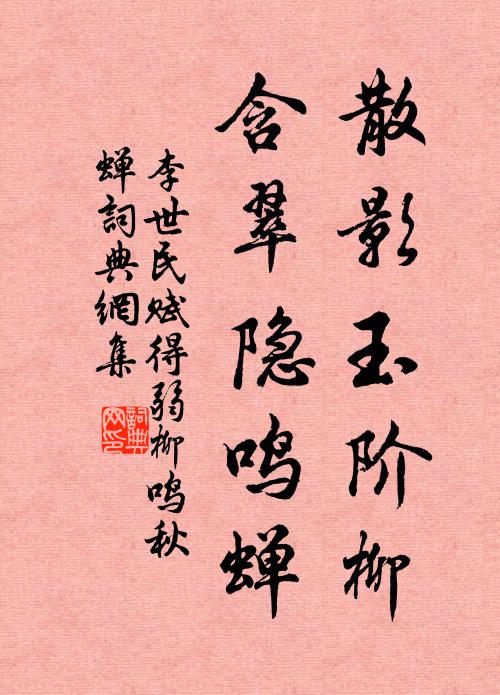 散影玉阶柳
含翠隐鸣蝉
李世民赋得弱柳鸣秋
蝉詞典網集
詞典
网印